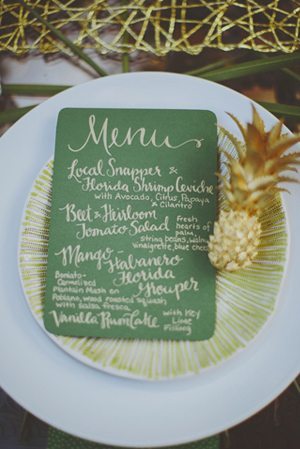 Menu
Local Snapper &
Florida Shrimp Ceviche
with Avocado, Citrus, Papaya
& Cilantro
Beet & Heirloom
Tomato Salad
Fresh
hearts of
palm,
string beans, walnut
vinaigrette, blue cheese
Mango-
Habanero
Florida
Grouper
Boniato-
Caramelized
Plantain Mash on
Poblano, wood roasted squash
with salsa fresca.
Vanilla Rum Cake
with Key
Lime